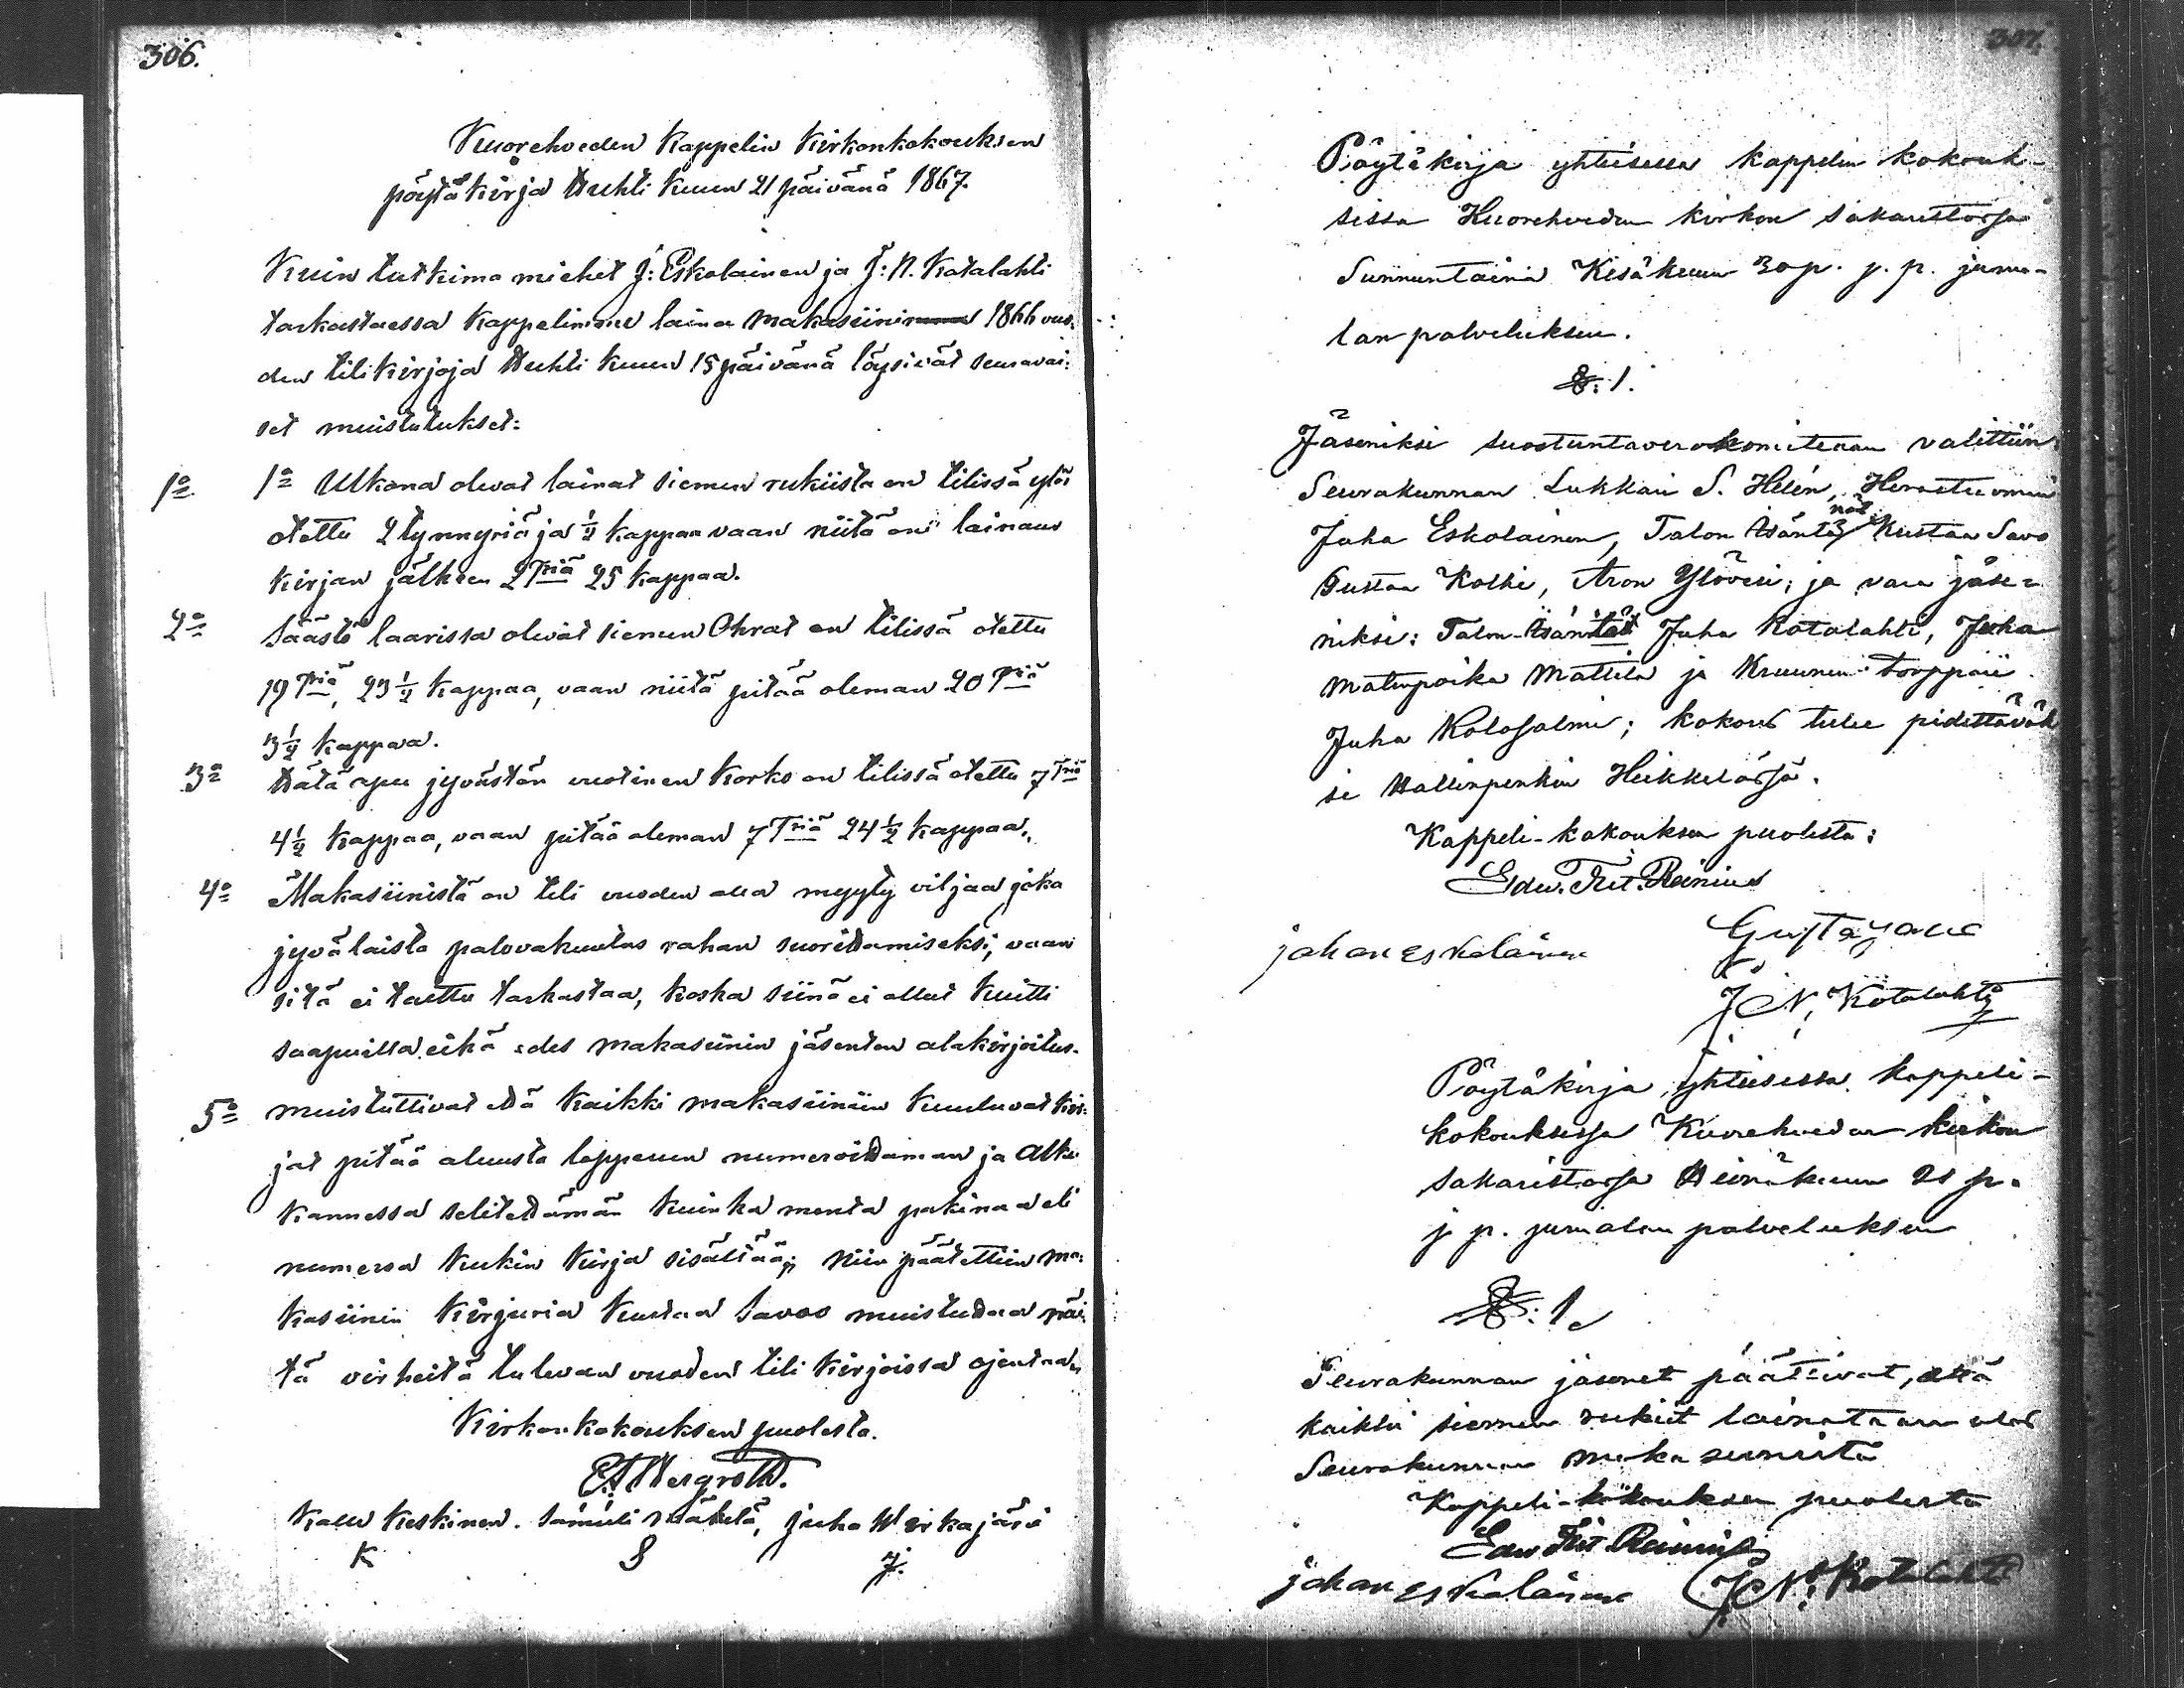 306.
Kuorehveden Kappelin Kirkonkokouksen
pöytäkirja Huhti Kuun 21 päivänä 1867.
Kuin tutkima miehet J: Eskolainen ja J: N. Kotalahti
tarkastaessa Kappelimme laina Makasiinin 1866 vuo:
den tilikirjoja Huhti Kuun 15 päivänä löysivät seuravai:
set muistutukset:
1o 1o Ulkona olevat lainat siemen rukiista on tilissä ylös
otettu 2 tynnyriä ja ½ kappaa vaan niitä on lainaus
kirjan jälkeen 2 Triä 25 kappaa.
2o Säästö laarissa olevat siemen Ohrat on tilissä otettu
19 Triä, 23½ Kappaa, vaan niitä pitää oleman 20 Triä
3½ kappaa.
3o Hätä apu jyvästön vuotinen Korko on tilissä otettu 7 Triä
4½ kappaa, vaan pitää oleman 7 Triä 24½ kappaa.
4o Makasiinistä on tili vuoden alla myyty viljaa, joka
jyvälaista palovakuutus rahan suorittamiseksi, vaan
sitä ei taittu tarkastaa, koska siinä ei ollut Kuitti
saapuilla eikä edes makasiinin jäsenten alakirjoitus.
5o muistuttivat että Kaikki makasiiniin Kuuluvat Kir:
jat pitää alusta loppuun numeroittaman ja Alku
Kannessa selitettämän Kuinka monta pakinaa eli
numeroa Kukin Kirja sisältää; niin päätettiin ma:
Kasiinin Kirjuria Kustaa Savoo muistuttaa näi:
tä virheitä tulevan vuoden tili Kirjoissa ojentaan
Kirkonkokouksen puolesta.
Kalle Keskinen. Samuli Mäkelä, Juha Virkajärvi
K S J.
307.
Pöytäkirja yhteisessa kappelin kokouk-
sissa Kuorehveden kirkon sakaristossa
Sunnuntaina Kesäkuun 30 p. j. p. juma-
lan palveluksen.
§: 1.
Jäseniksi suostuntaverokomiteaan valittiin
Seurakunnan Lukkari S. Helén, Herastuomari
Juha Eskolainen, Talon Isäntä nät. Kustaa Savo
Gustaa Kolhi, Aron Ylövesi; ja vara jäse=
niksi: Talon-Isäntät Juha Kotalahti, Juha
Matinpoika Mattila ja Kruunun torppari
Juha Kolosalmi; kokous tulee pidettäväk
si Hallinpenkin Heikkilässä.
Kappeli-kokouksen puolesta:
Edw. Fret. Reinius
johan eskolainen
Gusta savo
J. N. Kotalahti
Pöytäkirja yhteisessa kappeli-
kokouksessa Kuorehveden kirkon
sakaristossa Heinäkuun 21 p.
j p. jumalan palveluksen
§: 1.
Seurakunnan jäsenet päättivat, että
kaikki siemen rukiit lainataan ulos
Seurakunnan makasiinista
Kappeli-kokouksen puolesta
Edw Fret. Reinius
johan eskolainen J. N. Kotalahti